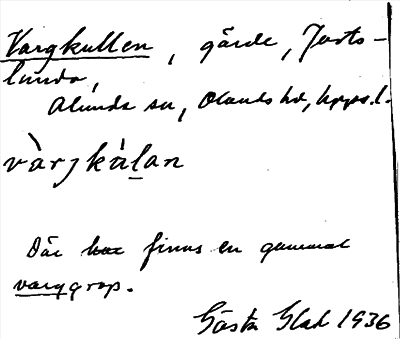 Vargkullen, gärde, Jarts-
lunda,
Alunda sn, Olands hd, Upps. l.
vàrjkálan
Där har finns en gammal
varggrop.
Gösta Glad 1936